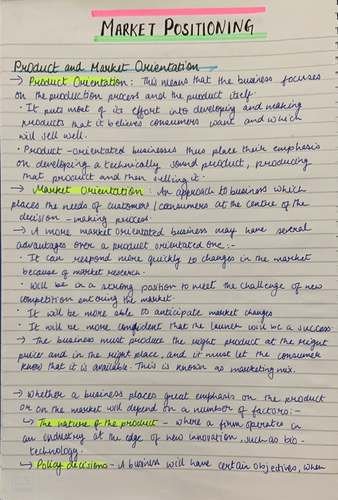 MARKET POSITIONING
Product and Market Orientation
→ Product Orientation: This means that the business focuses
on the production process and the product itself.
• It puts most of its effort into developing and making
products that it believes consumers want and which
will sell well.
• Product-orientated businesses thus place their emphasis
on developing a technically sound product, producing
that product and then selling it.
→ Market Orientation: An approach to business which
places the needs of customers/consumers at the centre of the
decision-making process.
→ A more market orientated business may have several
advantages over a product orientated one:-
• It can respond more quickly to changes in the market
because of market research.
• Will be in a strong position to meet the challenge of new
competition entering the market.
• It will be more able to anticipate market changes
• It will be more confident that the launch will be a success.
→ The business must produce the right product at the right
price and in the right place, and it must let the consumer
know that it is available. This is known as marketing mix.
→ Whether a business places great emphasis on the product
or on the market will depend on a number of factors:-
↳ The nature of the product - where a firm operates in
an industry at the edge of new innovation, such as bio-
technology.
↳ Policy decisions - A business will have certain objectives, when